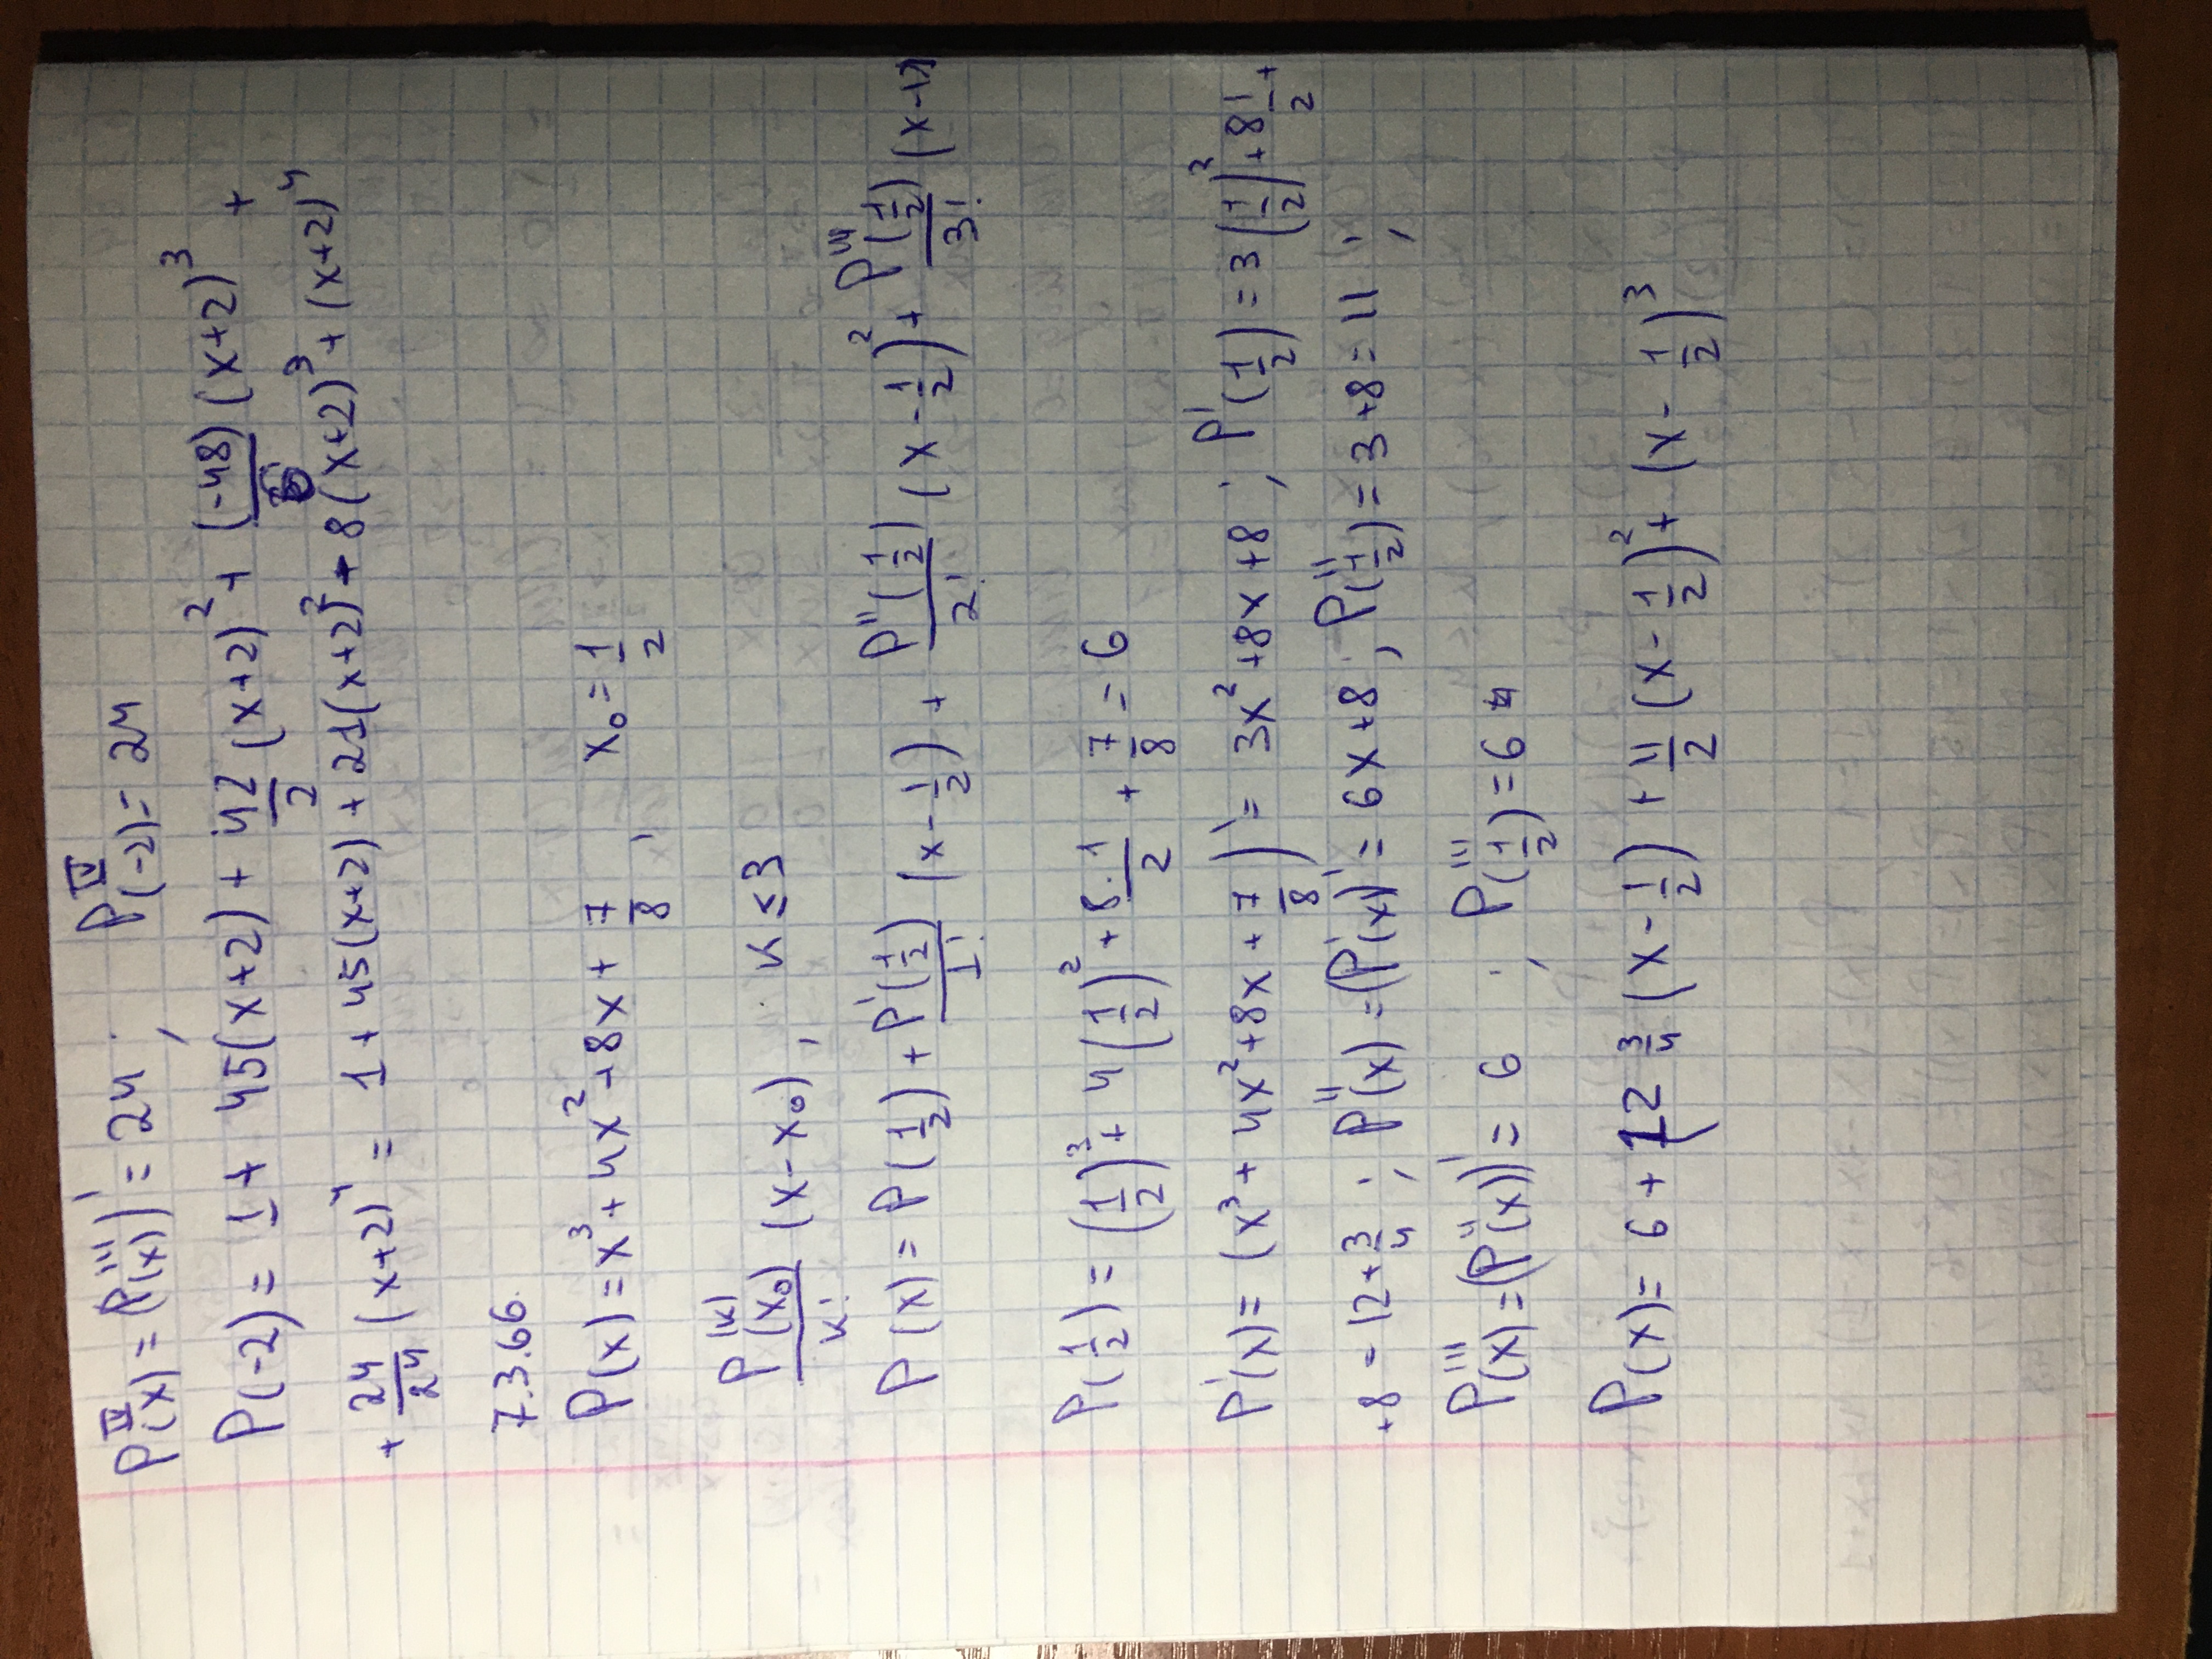 P^IV(x) = (P'''(x))' = 24 ; P^IV(-2) = 24
P(-2) = 1 + 45(x+2) + 42/2 (x+2)² + (-48)/6 (x+2)³ +
+ 24/24 (x+2)⁴ = 1 + 45(x+2) + 21(x+2)² - 8(x+2)³ + (x+2)⁴
7.3.66.
P(x) = x³ + 4x² + 8x + 7/8 , x₀ = 1/2
P^(k)(x₀)/k! (x - x₀) , k ≤ 3
P(x) = P(1/2) + P'(1/2)/1! (x - 1/2) + P''(1/2)/2! (x - 1/2)² + P'''(1/2)/3! (x-1/
P(1/2) = (1/2)³ + 4(1/2)² + 8·1/2 + 7/8 = 6
P'(x) = (x³ + 4x² + 8x + 7/8)' = 3x² + 8x + 8 ; P'(1/2) = 3(1/2)² + 8 1/2 +
+8 = 12 + 3/4 ; P''(x) = (P'(x))' = 6x + 8 ; P''(1/2) = 3 + 8 = 11 ;
P'''(x) = (P''(x))' = 6 ; P'''(1/2) = 6
P(x) = 6 + 12 3/4 (x - 1/2) + 11/2 (x - 1/2)² + (x - 1/2)³